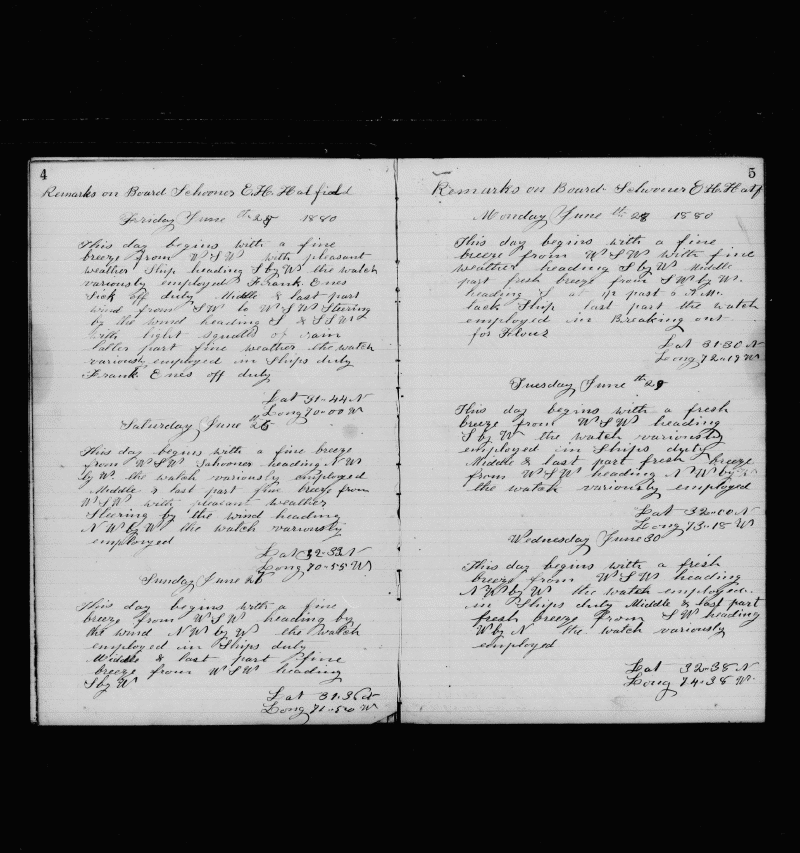 4
Remarks on Board Schooner E. H. Hatfield
Friday June th 25 1880
This day begins with a fine
breeze from W S W with pleasant
weather Ship heading S by W the watch
variously employed Frank Enes
Sick off duty Middle & last part
wind from SW to W S W Steering
by the wind heading S & S S W
with light squalls of rain
latter part fine weather the watch
variously employed in Ships duty
Frank Enes off duty
Lat 31-44 N
Long 70-00 W
Saturday June th 26
This day begins with a fine breeze
from W S W Schooner heading N W
by W. the watch variously employed
Middle & last part fine breeze from
W S W with pleasant weather
Steering by the wind heading
N W by W the watch variously
employed
Lat 32-33 N
Long 70-55 W
Sunday June
This day begins with a fine
breeze from W S W heading by
the wind N W by W the watch
employed in Ships duty
Middle & last part fine
breeze from W S W heading
S by W
Lat 31-36 N
Long 71-50 W
5
Remarks on Board Schooner E. H. Hatf
Monday June th 28 1880
This day begins with a fine
breeze from W S W with fine
weather heading S by W Middle
part fresh breeze from S W by W.
heading at 1/2 past 6 A.M.
tack Ship last part the watch
employed in Breaking out
for Flour
Lat 31-30 N
Long 72-19 W
Tuesday June th 29
This day begins with a fresh
breeze from W S W heading
S by W the watch variously
employed in Ships duty
Middle & last part fresh breeze
from W S W heading N W by W
the watch variously employed
Lat 32-00 N
Long 73-18 W
Wednesday June 30
This day begins with a fresh
breeze from W S W heading
N W by W the watch employed
in Ships duty Middle & last part
fresh breeze from S W heading
W by N the watch variously
employed
Lat 32-38 N
Long 74-38 W